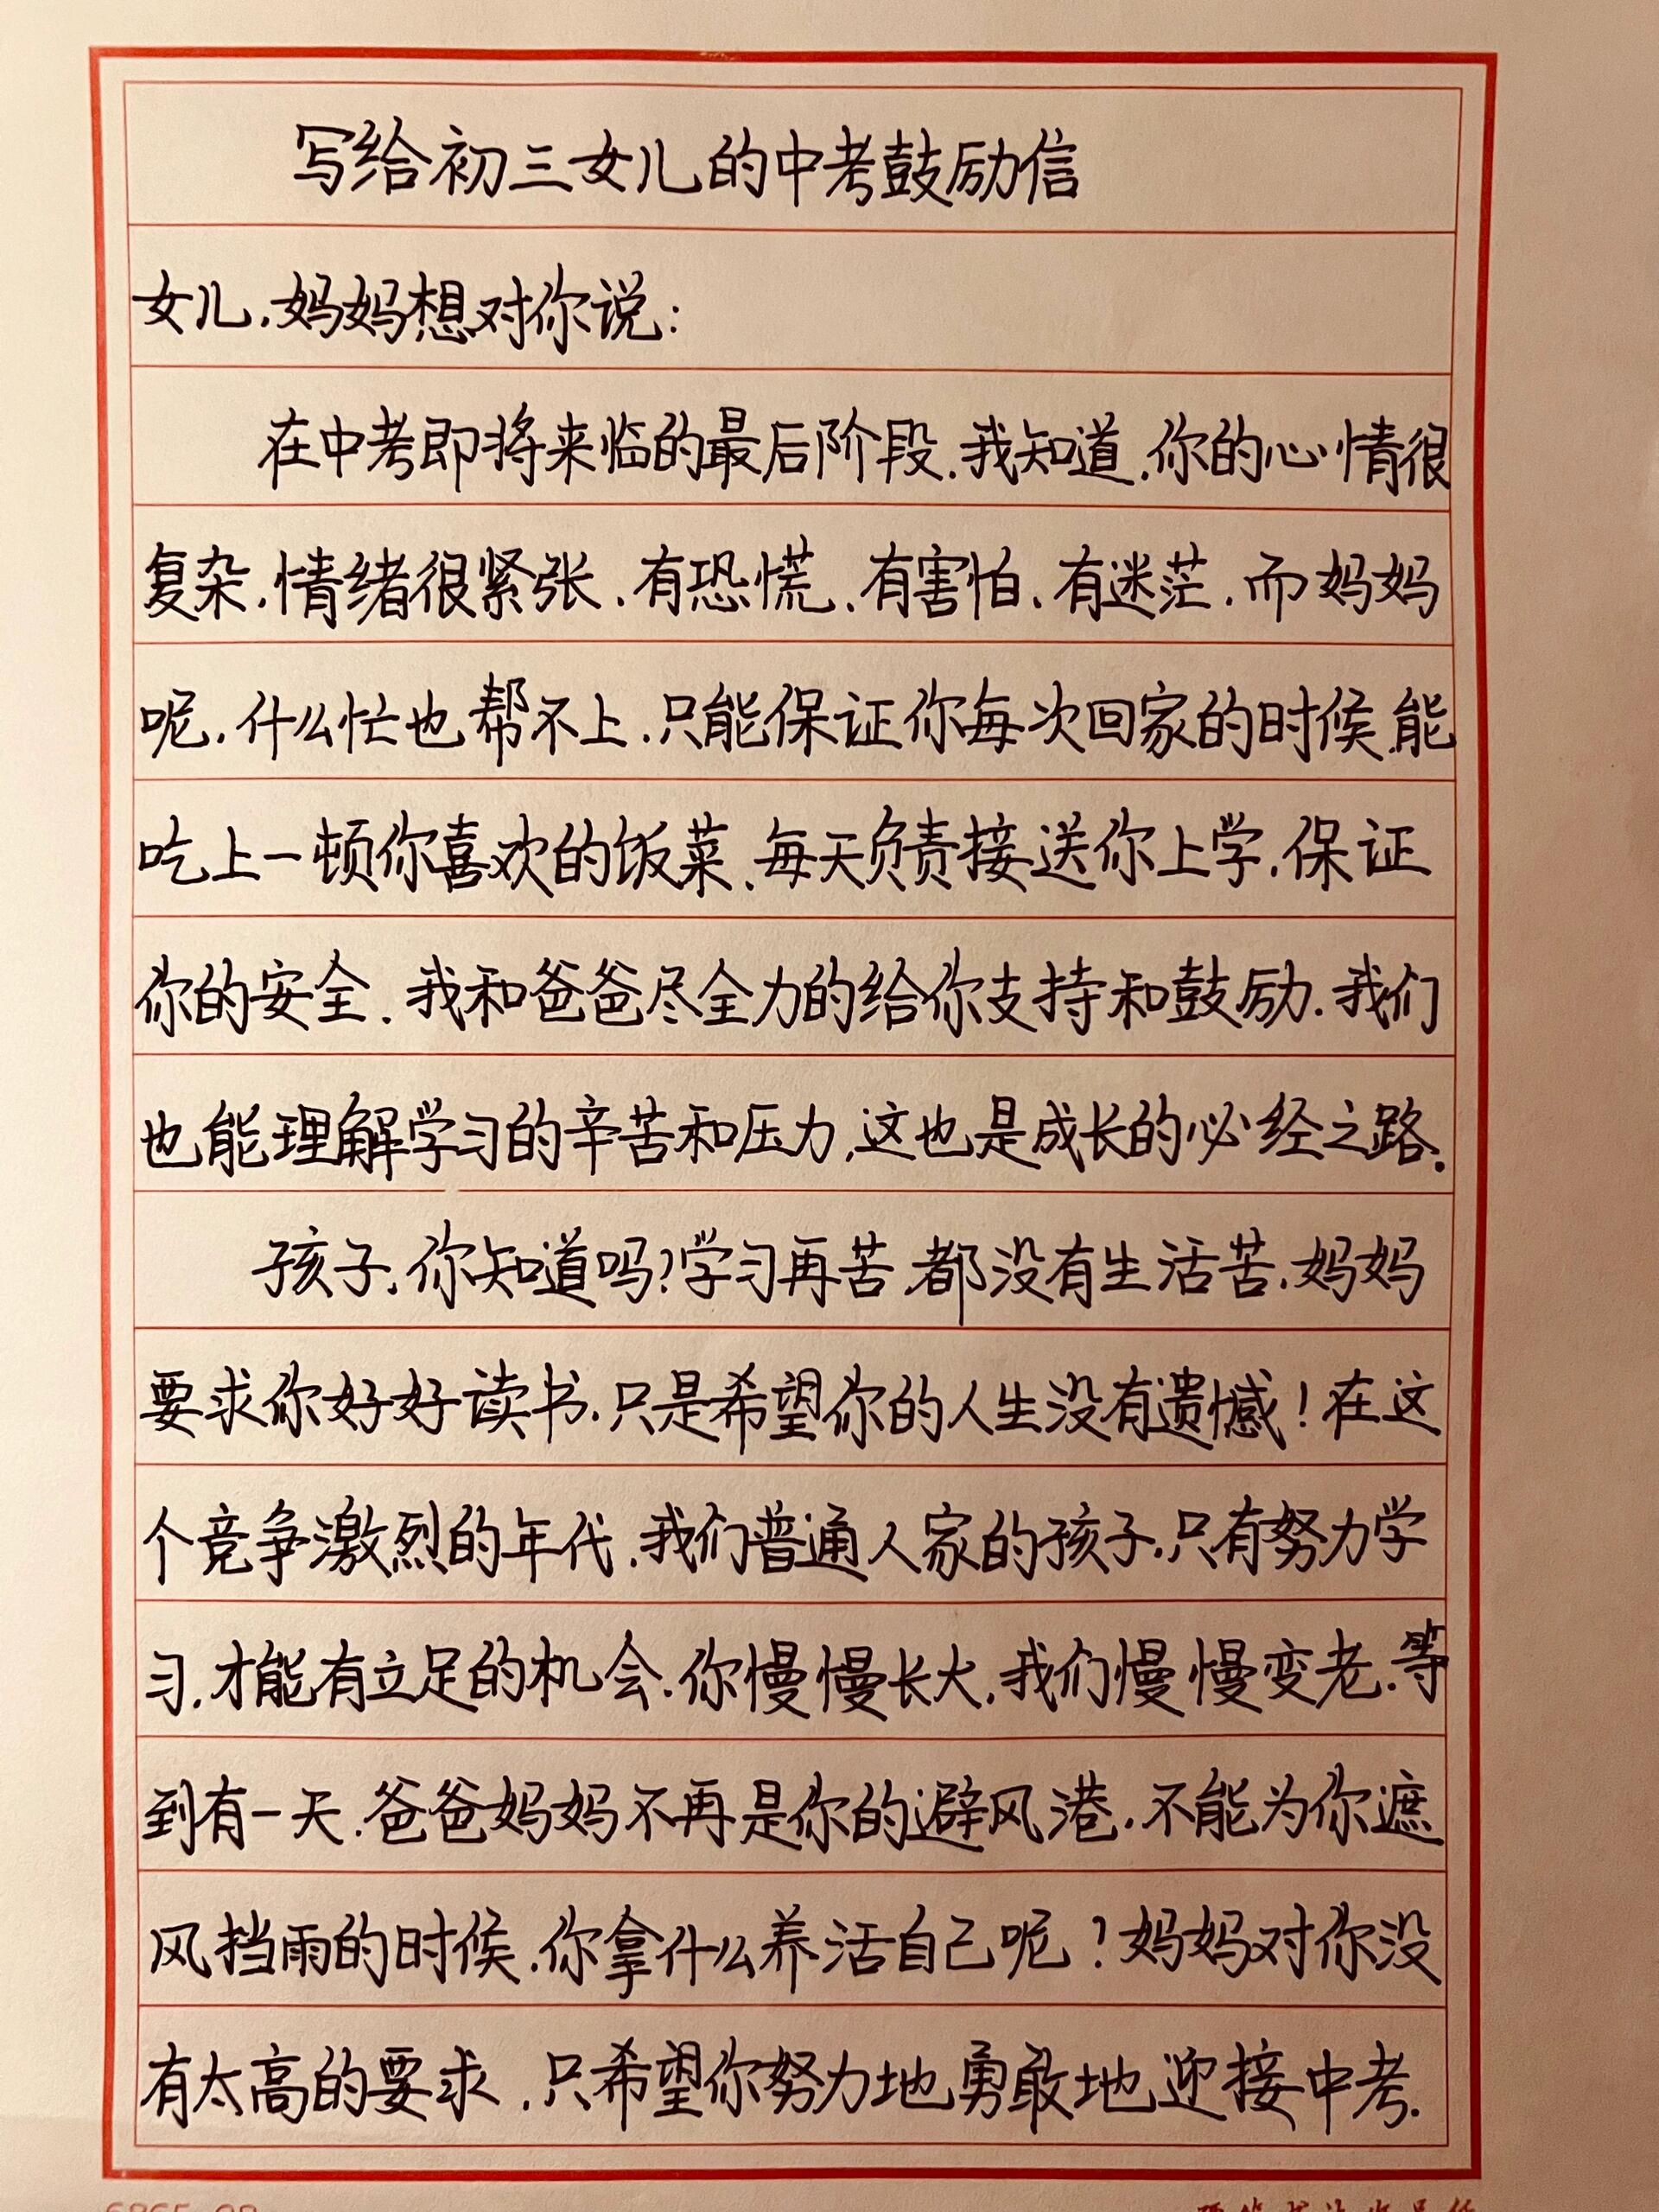 写给初三女儿的中考鼓励信
女儿,妈妈想对你说:
在中考即将来临的最后阶段,我知道,你的心情很
复杂,情绪很紧张,有恐慌、有害怕、有迷茫,而妈妈
呢,什么忙也帮不上,只能保证你每次回家的时候,能
吃上一顿你喜欢的饭菜、每天负责接送你上学,保证
你的安全.我和爸爸尽全力的给你支持和鼓励.我们
也能理解学习的辛苦和压力,这也是成长的必经之路.
孩子,你知道吗?学习再苦,都没有生活苦,妈妈
要求你好好读书,只是希望你的人生没有遗憾!在这
个竞争激烈的年代,我们普通人家的孩子,只有努力学
习,才能有立足的机会.你慢慢长大,我们慢慢变老.等
到有一天,爸爸妈妈不再是你的避风港,不能为你遮
风挡雨的时候,你拿什么养活自己呢?妈妈对你没
有太高的要求,只希望你努力地勇敢地迎接中考.